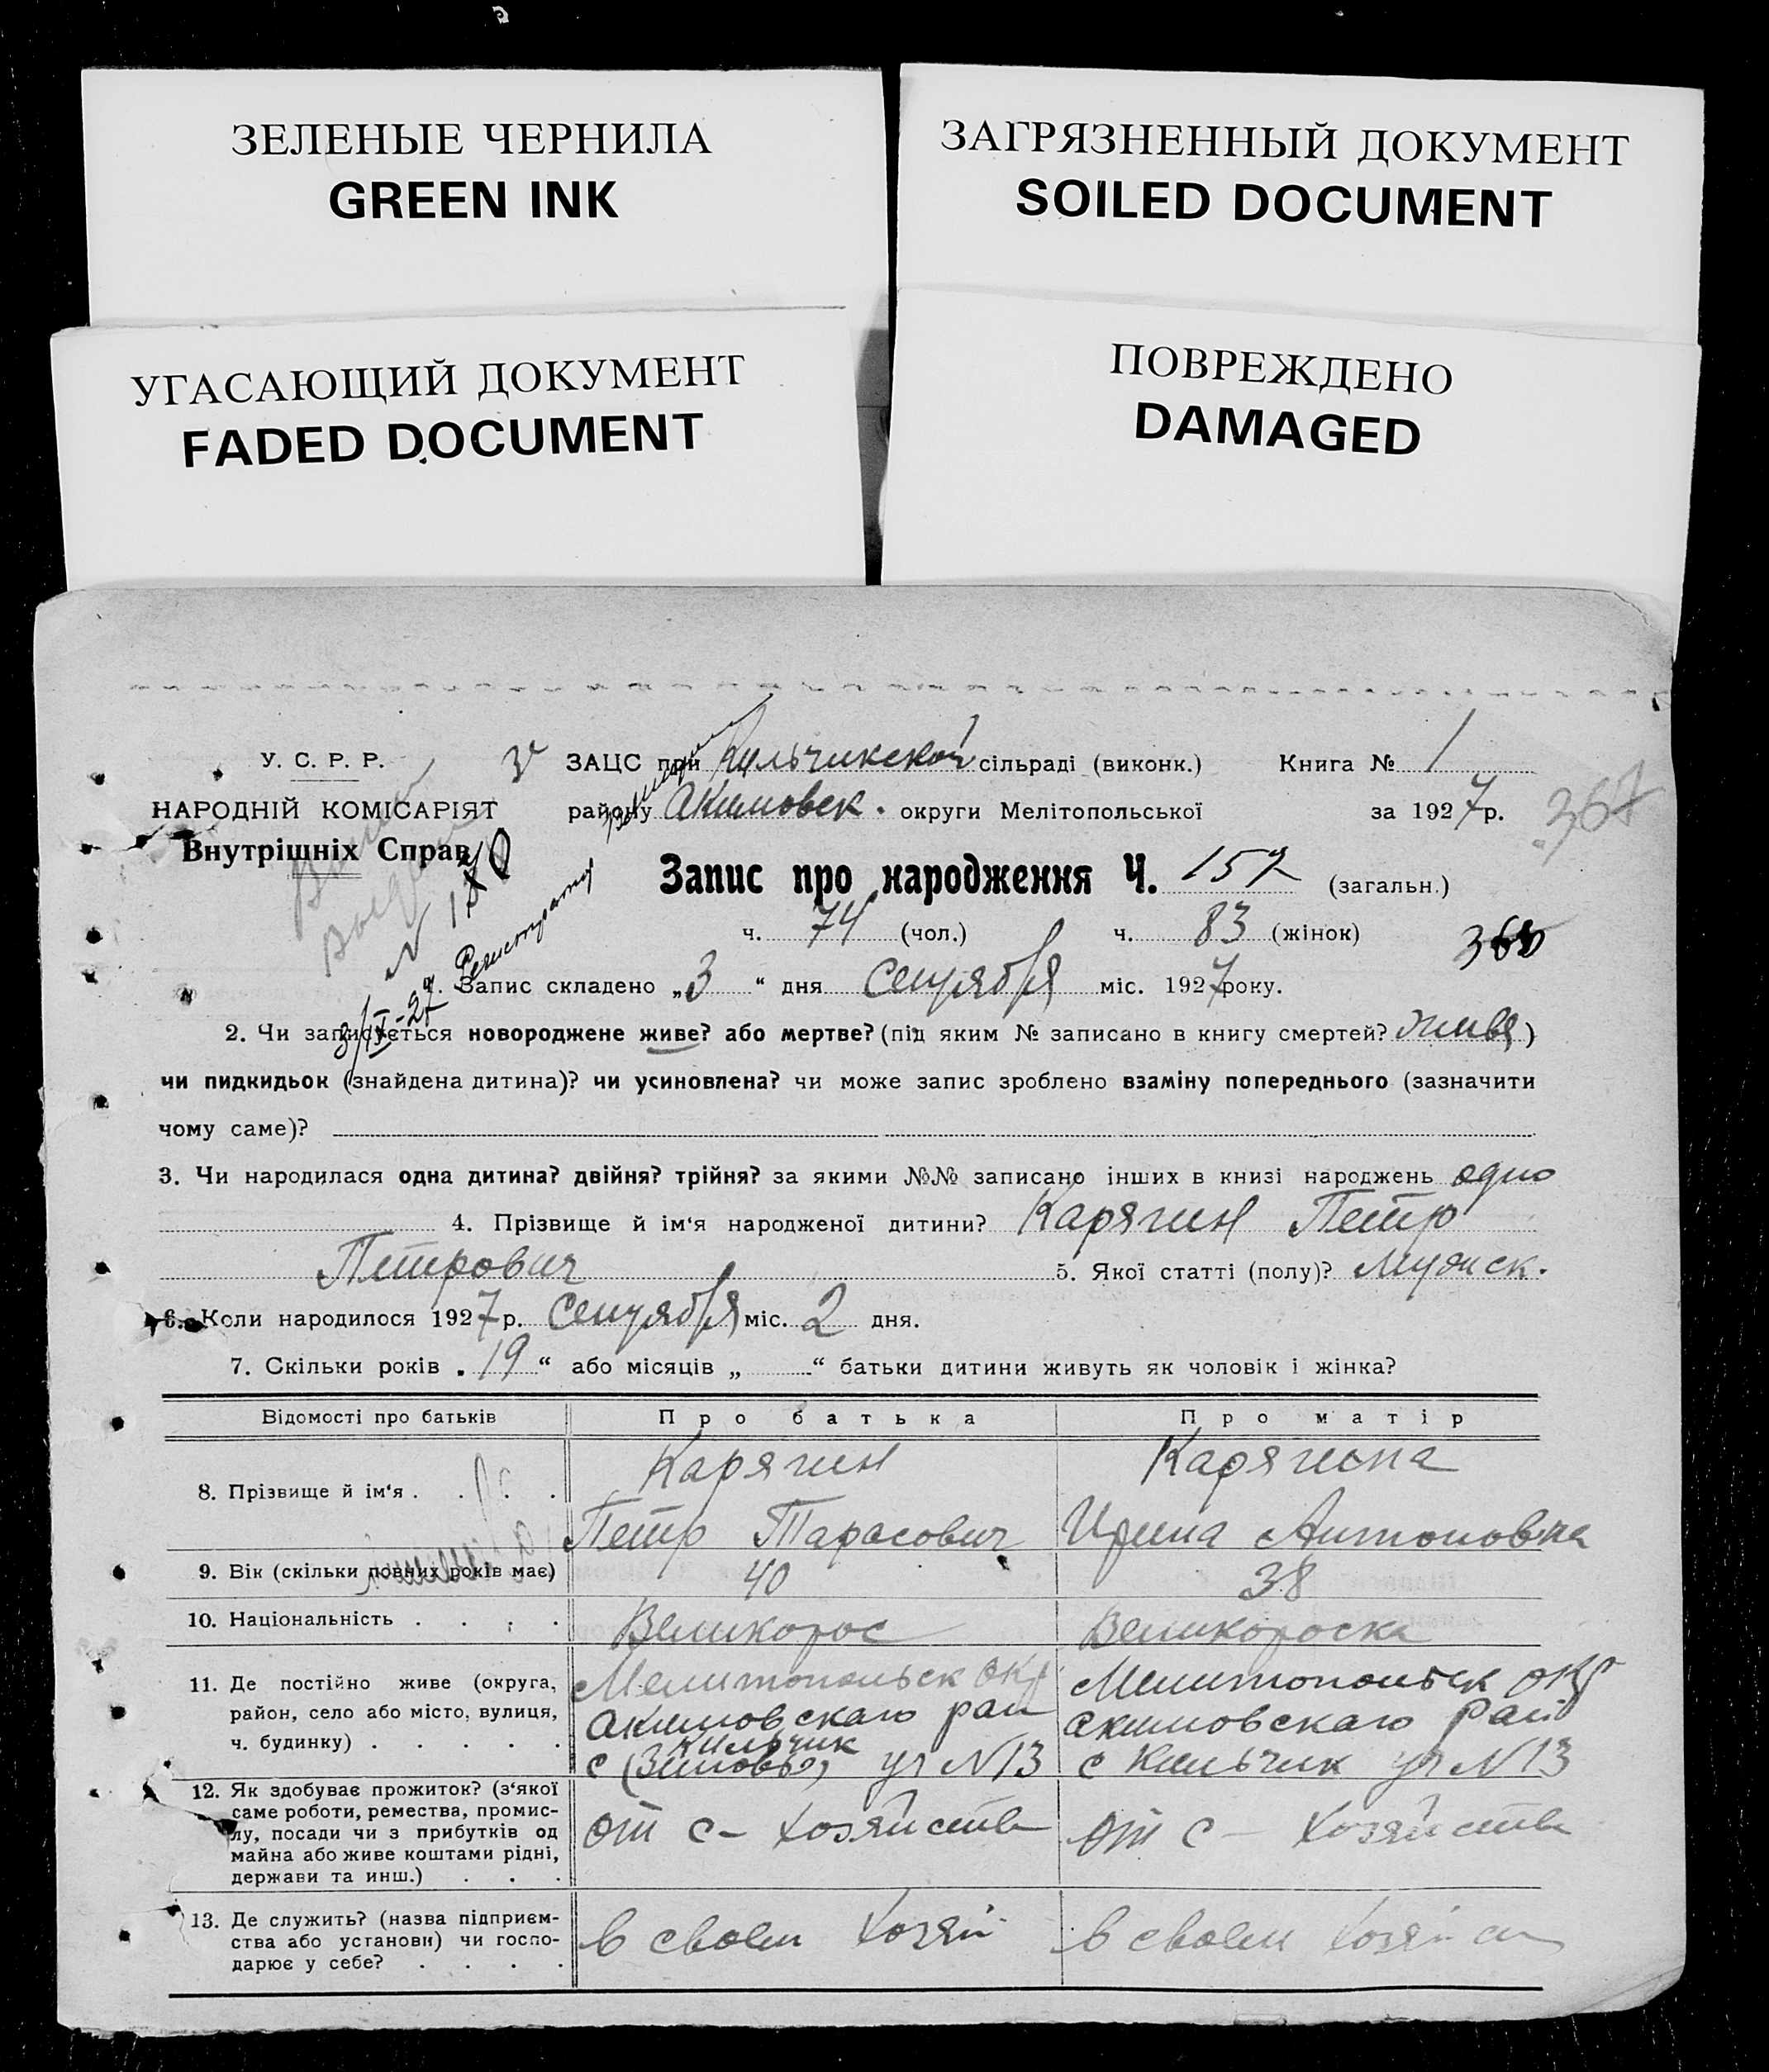 ЗЕЛЕНЫЕ ЧЕРНИЛА
GREEN INK
ЗАГРЯЗНЕННЫЙ ДОКУМЕНТ
SOILED DOCUMENT
УГАСАЮЩИЙ ДОКУМЕНТ
FADED DOCUMENT
ПОВРЕЖДЕНО
DAMAGED
У. С. Р. Р.
НАРОДНІЙ КОМІСАРІЯТ
Внутрішніх Справ
ЗАЦС при Кильчикской сільраді (виконк.) Книга № 1
району Акимовск. округи Мелітопольської за 1927 р. 367
Запис про народження Ч. 157 (загальн.)
ч. 74 (чол.) ч. 83 (жінок)
Запис складено „3“ дня Сентября міс. 1927 року.
2. Чи записується новороджене живе? або мертве? (під яким № записано в книгу смертей? живе)
чи пидкидьок (знайдена дитина)? чи усиновлена? чи може запис зроблено взаміну попереднього (зазначити
чому саме)?
3. Чи народилася одна дитина? двійня? трійня? за якими №№ записано інших в книзі народжень одно
4. Прізвище й ім‘я народженої дитини? Карягин Петр
Петрович 5. Якої статті (полу)? Мужск.
6. Коли народилося 1927 р. Сентября міс. 2 дня.
7. Скільки років „19“ або місяців „ “ батьки дитини живуть як чоловік і жінка?
Відомості про батьків Про батька Про матір
8. Прізвище й ім‘я . . . . Карягин Карягина
Петр Тарасович Ирина Антоновна
9. Вік (скільки повних років має) 40 38
10. Національність . . . . Великорос Великороска
11. Де постійно живе (округа, Мелитопольск окр Мелитопольск окр
район, село або місто, вулиця, Акимовскаго рай Акимовскаго рай
ч. будинку) . . . . . с (Зиновьо) Кильчик ул N 13 с Кильчик ул N 13
12. Як здобуває прожиток? (з‘якої
саме роботи, ремества, промис- от с- хозяйства от с- хозяйства
лу, посади чи з прибутків од
майна або живе коштами рідні,
держави та инш.) . . .
13. Де служить? (назва підприєм-
ства або установи) чи госпо- в своем хозяй в своем хозяйст
дарює у себе? . . . .